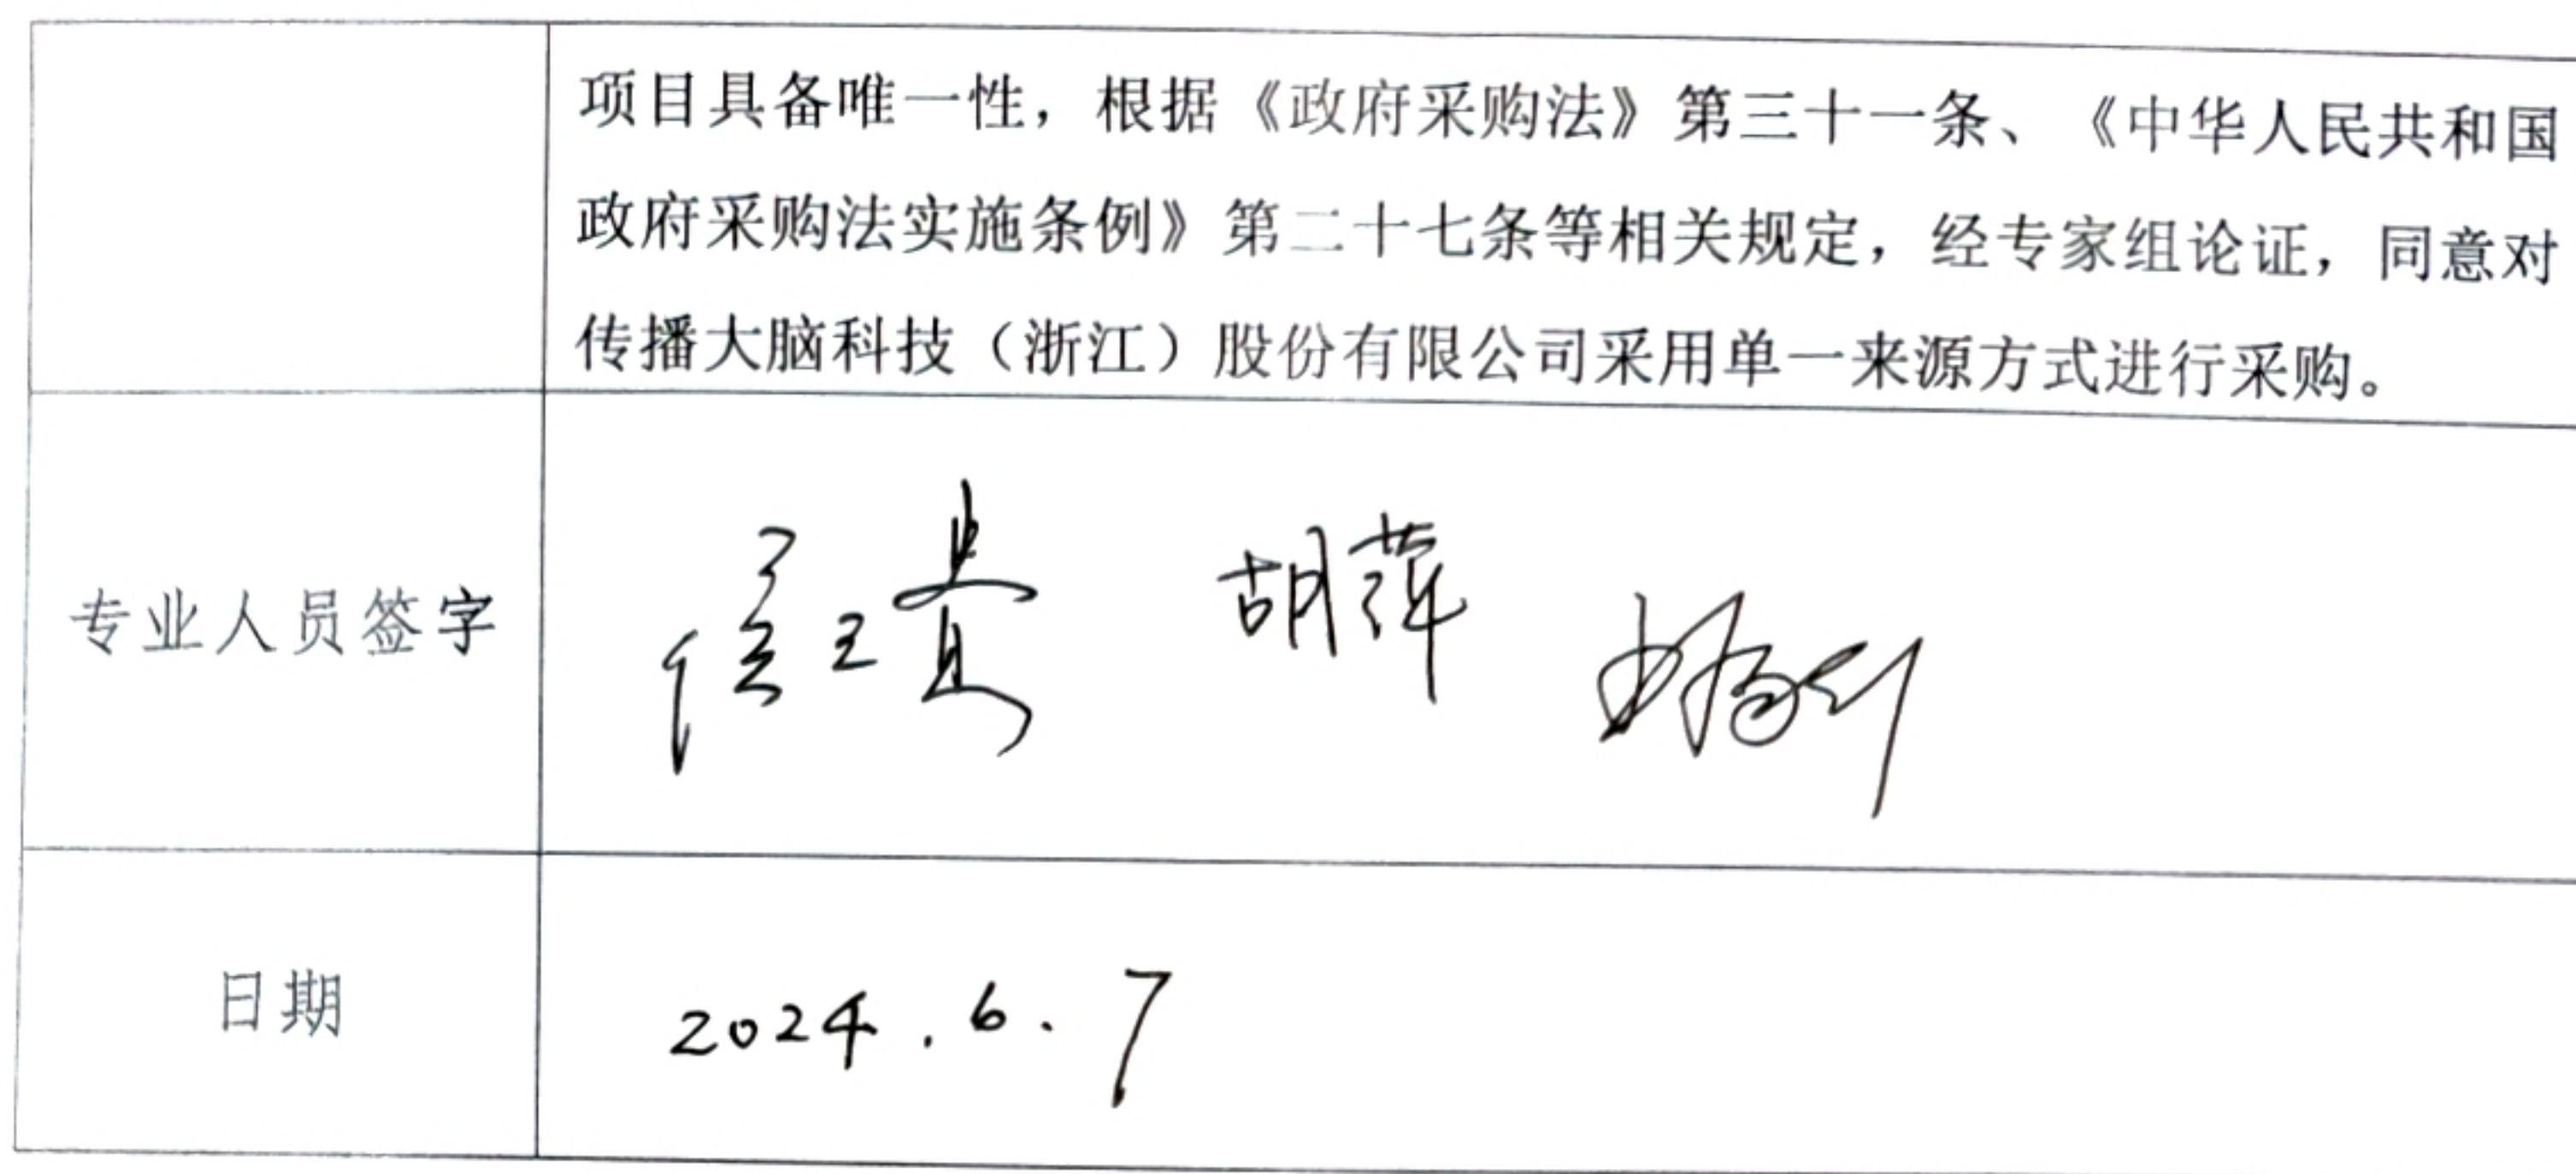 项目具备唯一性，根据《政府采购法》第三十一条、《中华人民共和国
政府采购法实施条例》第二十七条等相关规定，经专家组论证，同意对
传播大脑科技（浙江）股份有限公司采用单一来源方式进行采购。
专业人员签字
胡萍
日期
2024.6.7